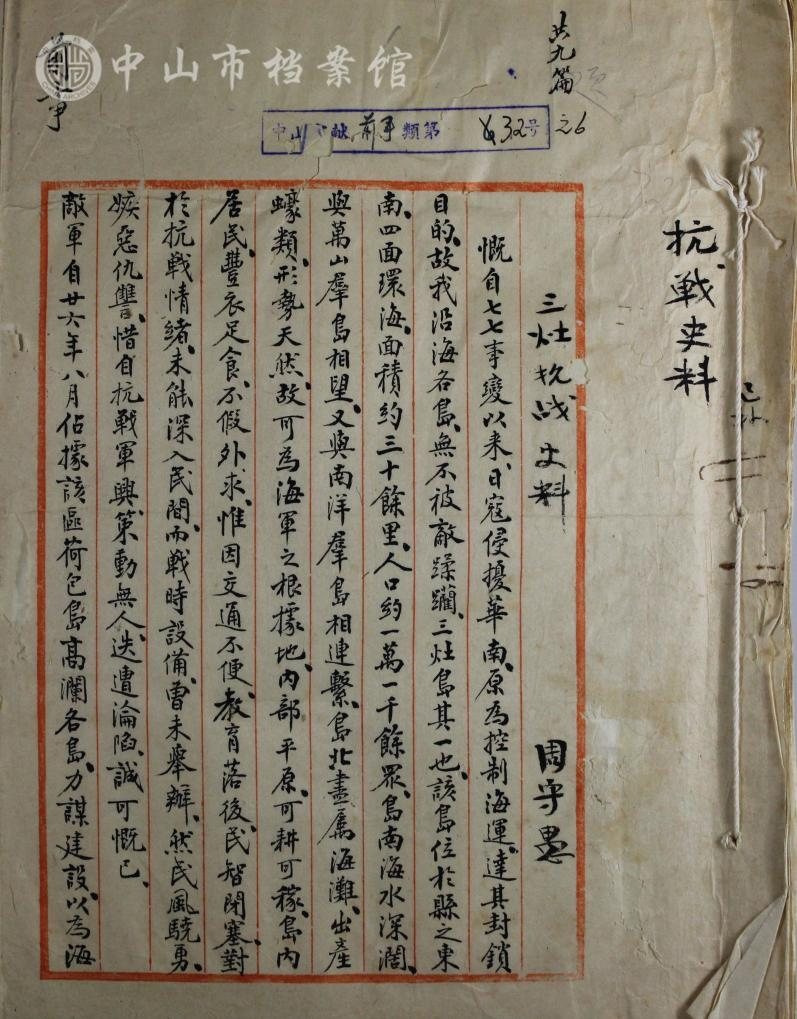 共九篇
中山市档案馆
中山文献前事類第432号之6
抗戰史料
三灶抗战史料 周守愚
慨自七七事變以来、日寇侵擾華南、原為控制海運、達其封鎖
目的、故我沿海各島、無不被敵蹂躪、三灶島其一也、該島位於縣之東
南、四面環海、面積約三十餘里、人口約一萬一千餘眾、島南海水深濶、
與萬山羣島相望、又與南洋羣島相連繫、島北盡屬海灘、出產
蠔類、形勢天然、故可為海軍之根據地、内部平原、可耕可稼、島内
居民、豐衣足食、不假外求、惟因交通不便、教育落後、民智閉塞、對
於抗戰情緒、未能深入民間、而戰時設備、曾未舉辦、然民風驍勇、
嫉惡仇讐、惜自抗戰軍興、策動無人、迭遭淪陷、誠可慨已、
敵軍自廿六年八月佔據該區荷包島高瀾各島、力謀建設、以為海